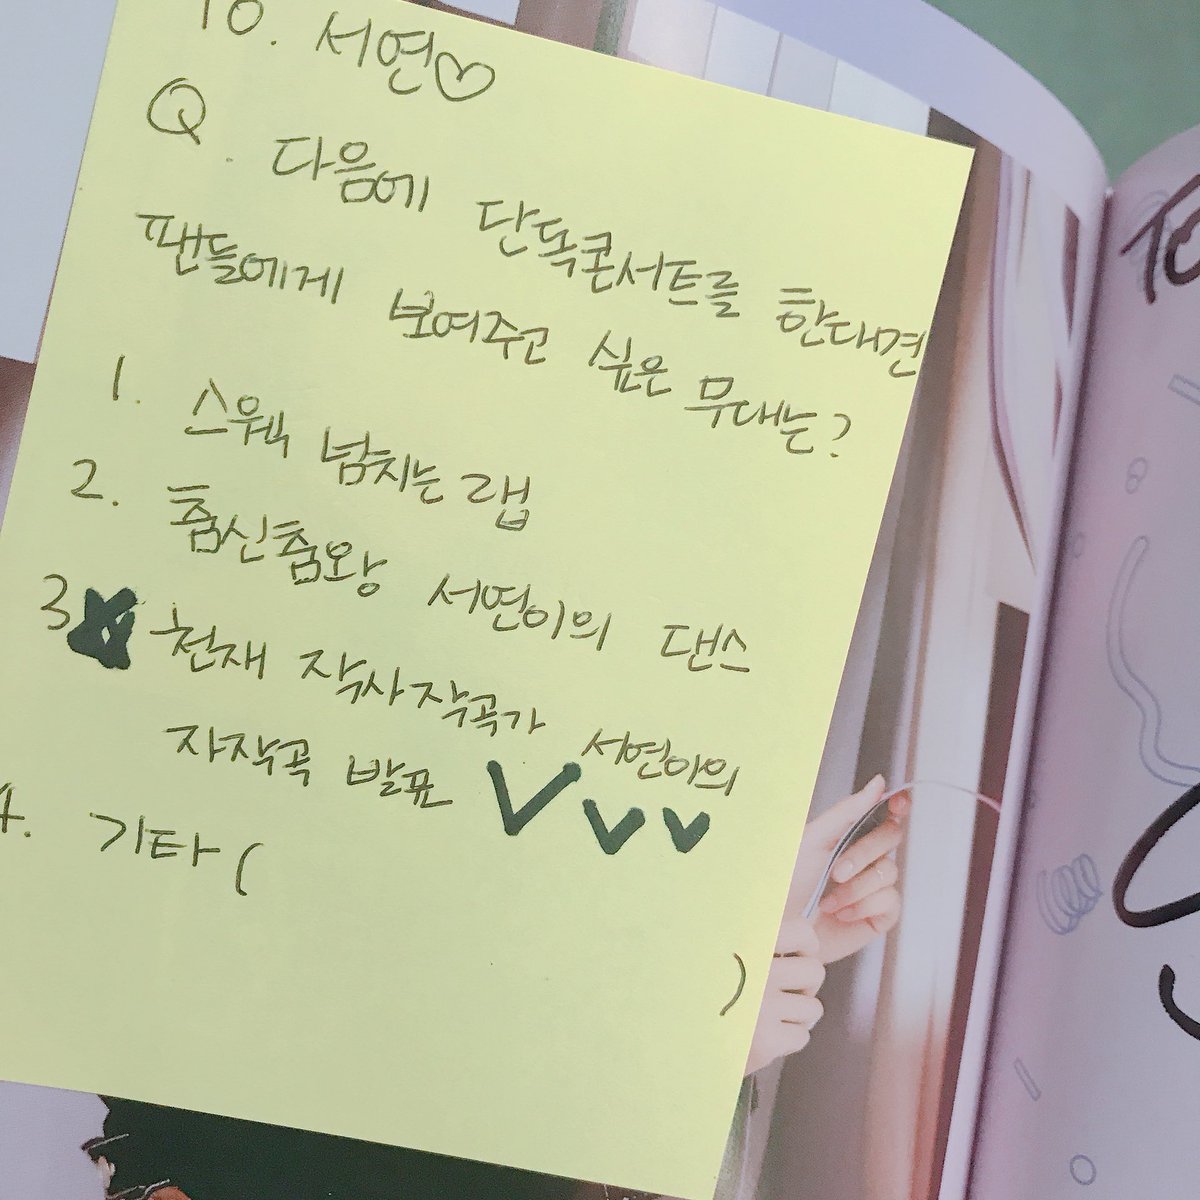 To. 서연♡
Q. 다음에 단독콘서트를 한다면
팬들에게 보여주고 싶은 무대는?
1. 스웩 넘치는 랩
2. 춤신춤왕 서연이의 댄스
3 천재 작사작곡가 서연이의
자작곡 발표 ✓✓♥
4. 기타 (
)
To